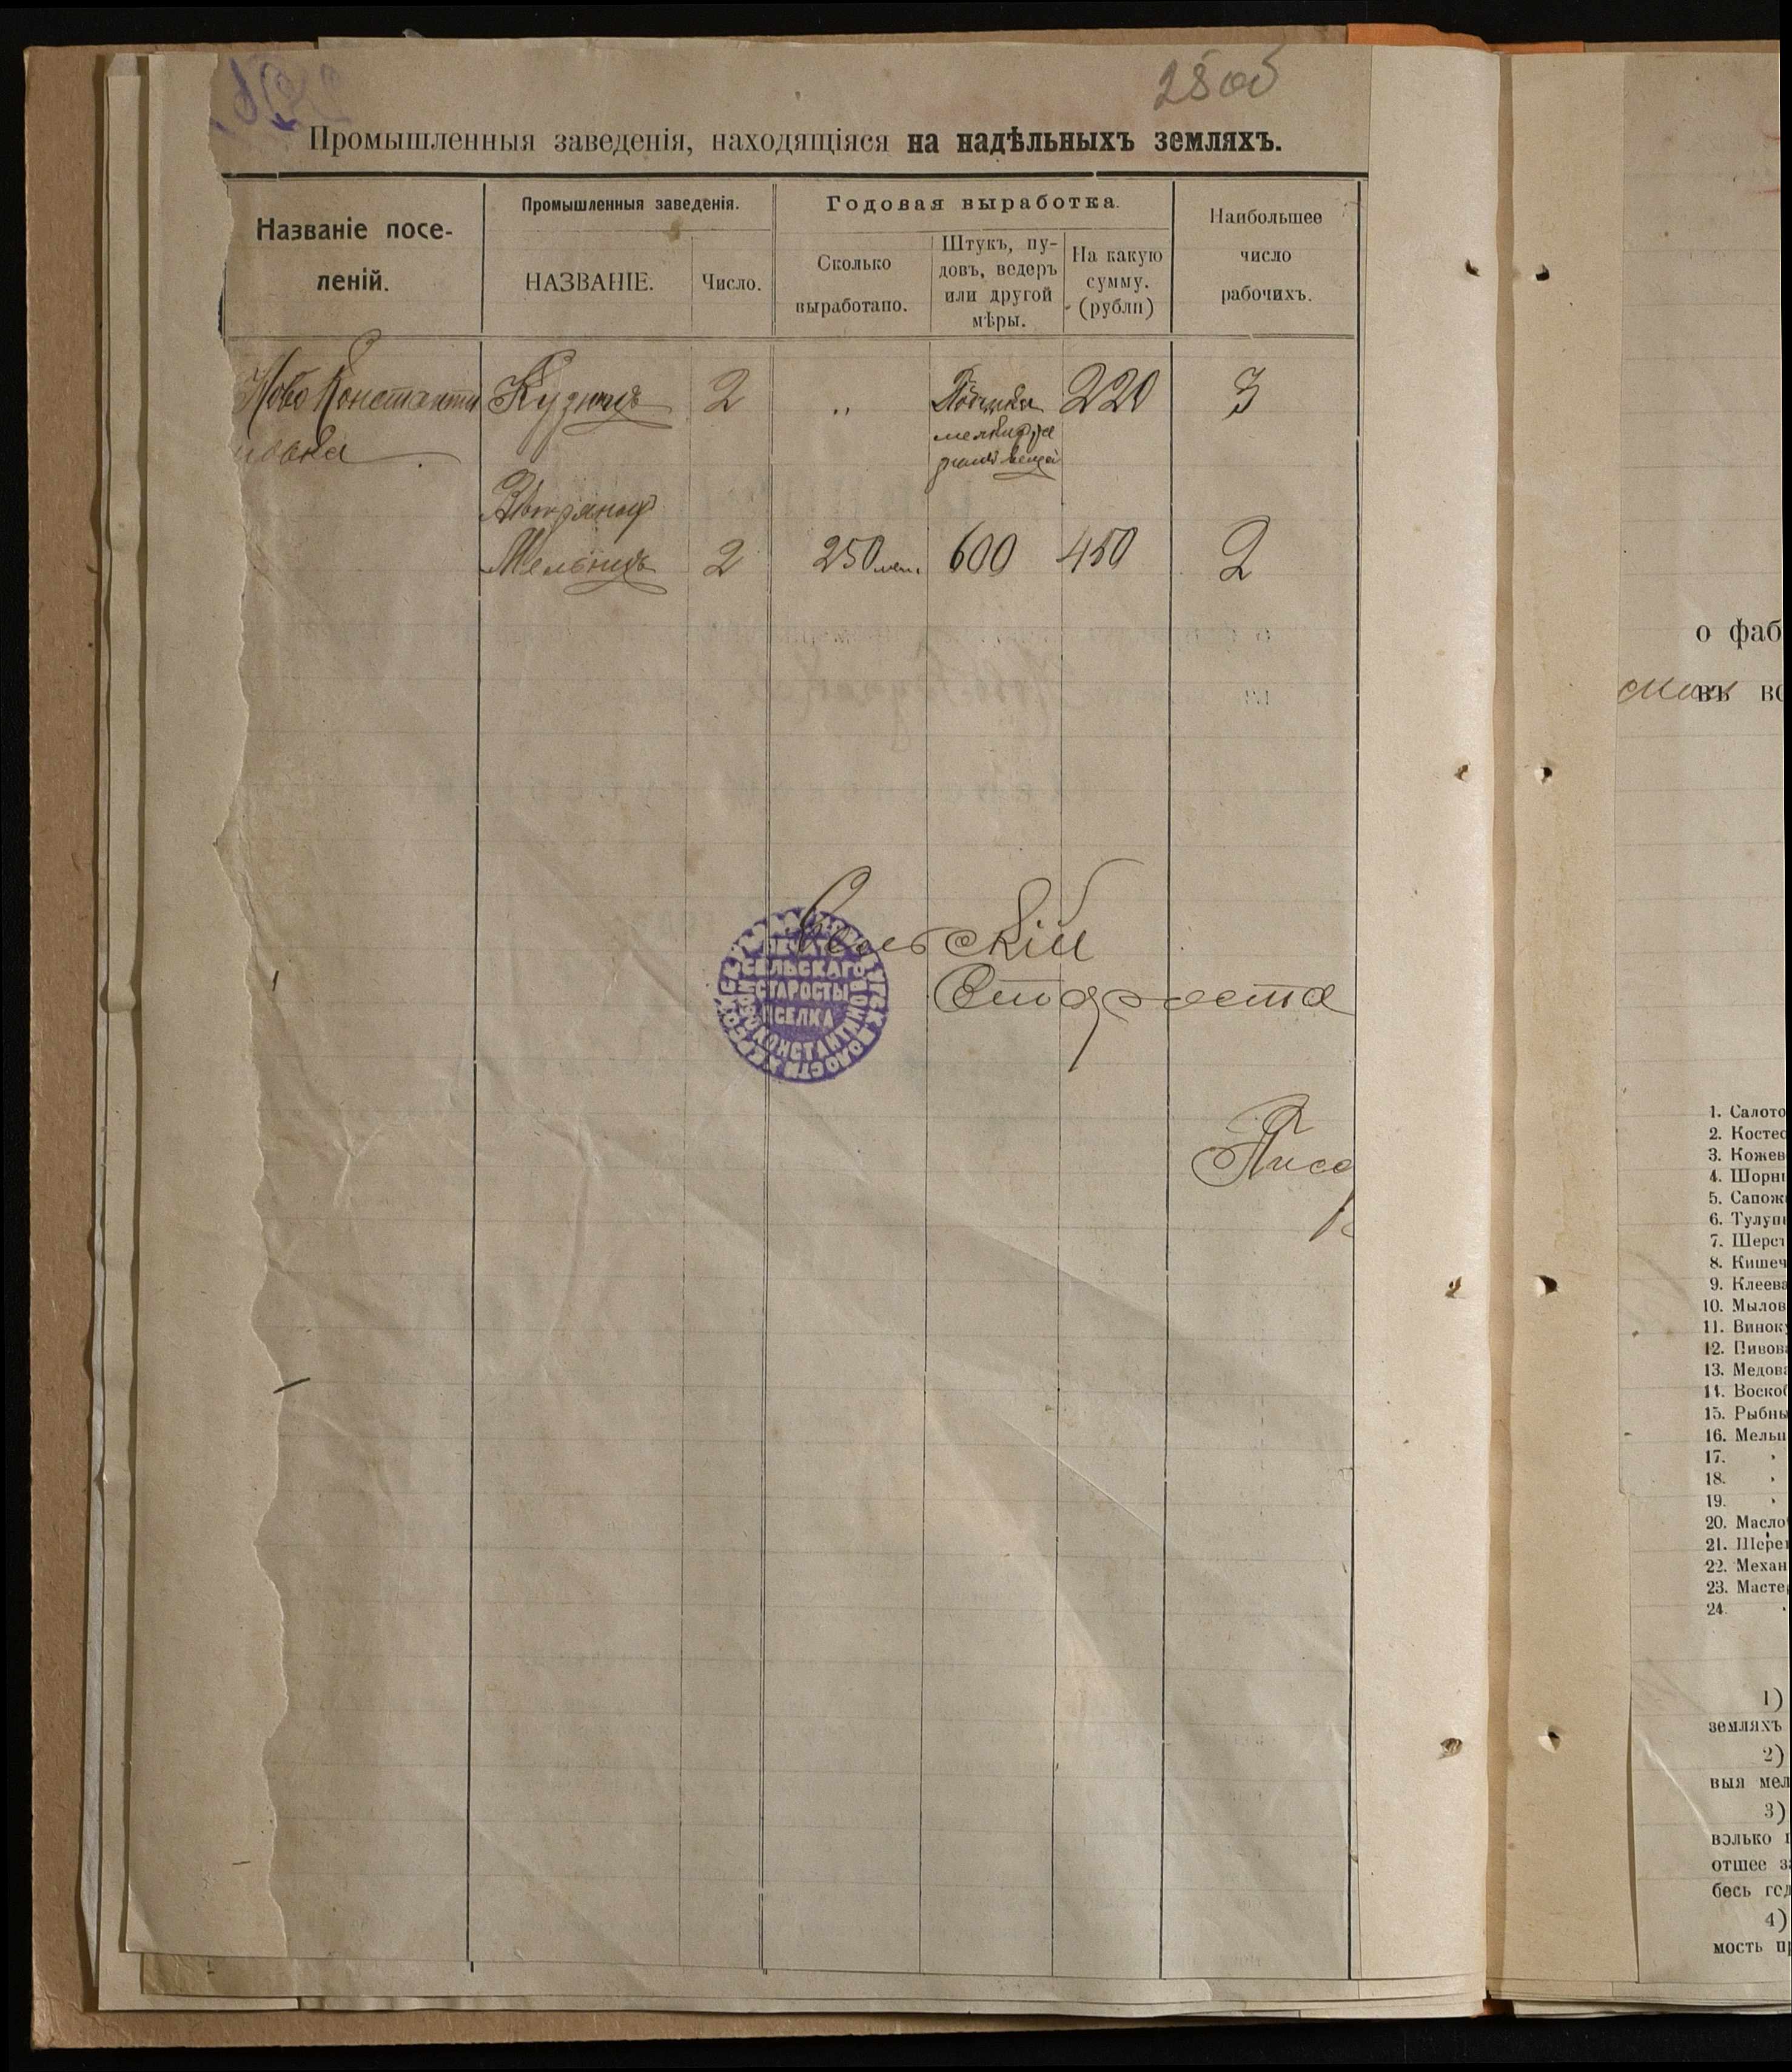 25 об
Промышленныя заведенія, находящіяся на надѣльныхъ земляхъ.
Названіе посе-
леній.
Промышленныя заведенія.
НАЗВАНІЕ.
Число.
Годовая выработка.
Сколько
выработано.
Штукъ, пу-
довъ, ведеръ
или другой
мѣры.
На какую
сумму.
(рубли)
Наибольшее
число
рабочихъ.
Ново Константи
новка
Кузницъ 2 „ 220 3
мелкихъ
вещей
Вѣтряныхъ
Мельницъ 2 250 600 450 2
Сельскій
Староста
ПЕЧАТЬ
СЕЛЬСКАГО
СТАРОСТЫ
ПСЕЛКА
Писа
о фаб
въ во
1. Салото
2. Костео
3. Кожев
4. Шорн
5. Сапож
6. Тулуп
7. Шерст
8. Кишеч
9. Клеева
10. Мылов
11. Винок
12. Пивов
13. Медов
14. Воскоб
15. Рыбны
16. Мельн
17.
18.
19.
20. Масло
21. Шере
22. Механ
23. Масте
24.
1)
земляхъ
2)
выя мел
3)
волько
отшее за
бесь год
4)
мость пр